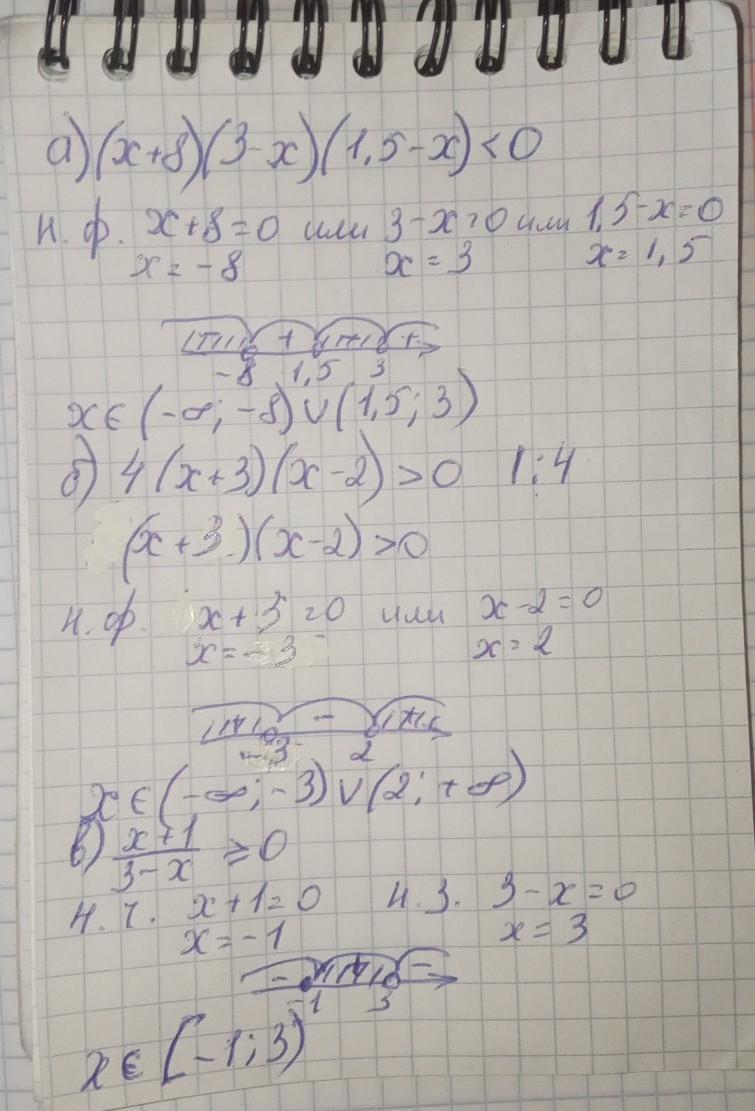 а) (x+8)(3-x)(1,5-x)<0
н.ф. x+8=0 или 3-x=0 или 1,5-x=0
x=-8 x=3 x=1,5
- + - +
-8 1,5 3
x∈(-∞;-8)∪(1,5;3)
б) 4(x+3)(x-2)>0 |:4
(x+3)(x-2)>0
н.ф. x+3=0 или x-2=0
x=-3 x=2
+ - +
-3 2
x∈(-∞;-3)∪(2;+∞)
в) (x+1)/(3-x) ≥0
н.ч. x+1=0 н.з. 3-x=0
x=-1 x=3
- + -
-1 3
x∈[-1;3)